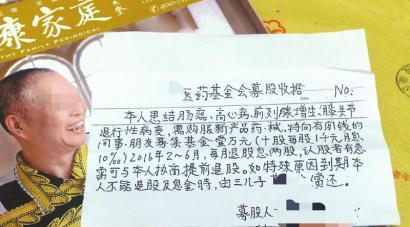 康家庭
THY FAMILY PERIODICAL
医药基金会募股收据
本人患结肠癌、高心病、前列腺增生、膝关节
退行性病变,需购服新产品药、械,特向有闲钱的
同事、朋友募集基金壹万元(十股每股1千元,月息
10%)2016年2~6月,每月退股息两股,认股者有急
需可与本人协商提前退股。如特殊原因到期本
人不能退股及息金时,由三儿子 赏还。
募股人: